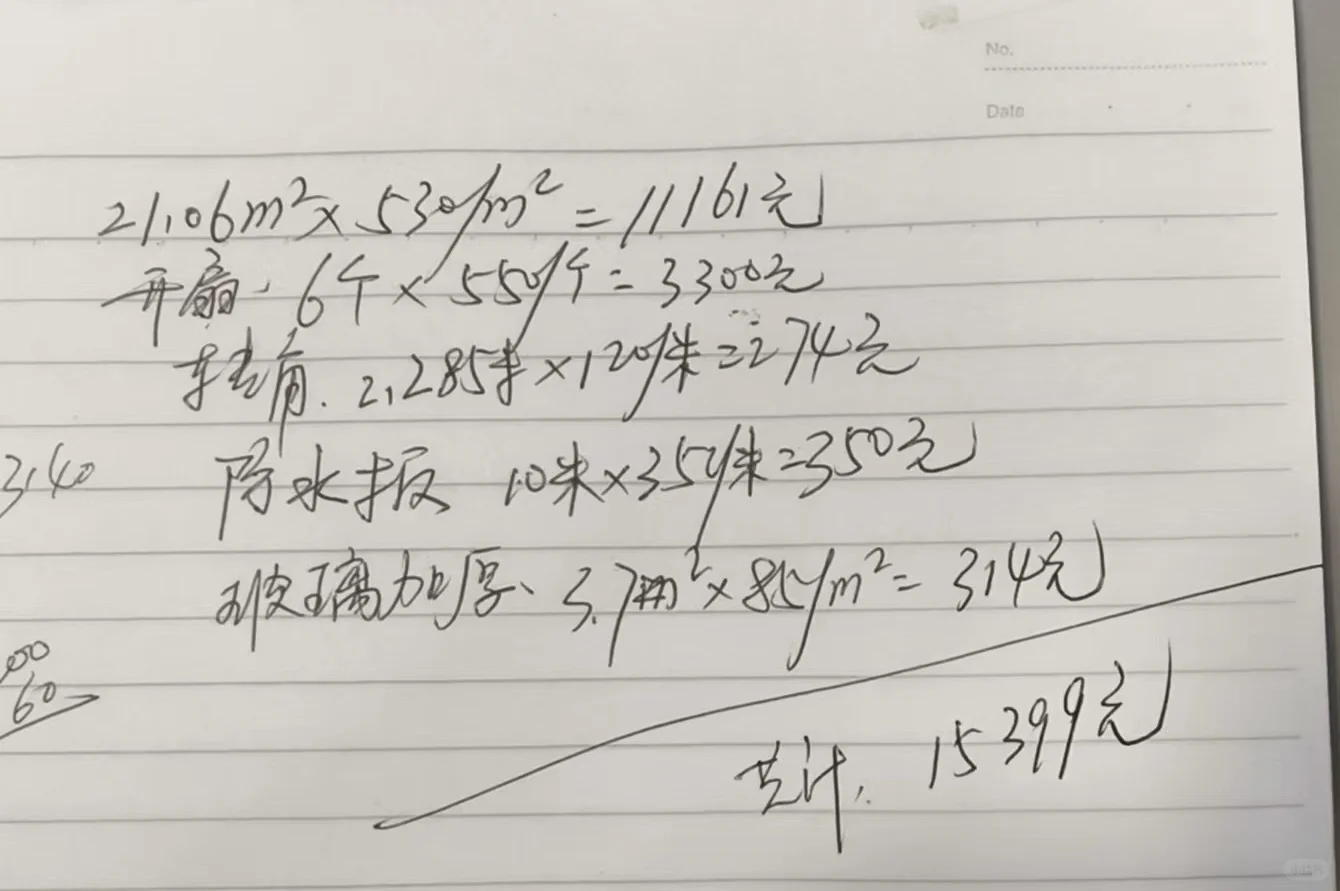 No.
Date
21.06m²×530/m²=11161元
开扇. 6个×550/个=3300元
转角. 2.285米×120/米=274元
3.40
防水板 10米×35/米=350元
玻璃加厚、3.7m²×85/m²=314元
00
60
共计. 15399元